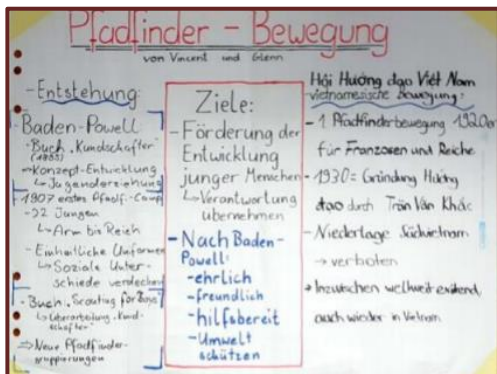 Pfadfinder - Bewegung
von Vincent und Glenn
- Entstehung:
Baden-Powell
- Buch „Kundschafter"
→ Konzept-Entwicklung
↳ Jugenderziehung
1907 erstes Pfadf.-Camp
- 22 Jungen
↳ Arm bis Reich
- Einheitliche Uniformen
↳ Soziale Unter-
schiede verdecken
- Buch „Scouting for Boys"
↳ Überarbeitung „Kund-
schafter"
⇒ Neue Pfadfinder-
gruppierungen
Ziele:
- Förderung der
Entwicklung
junger Menschen
↳ Verantwortung
übernehmen
- Nach Baden-
Powell:
- ehrlich
- freundlich
- hilfsbereit
- Umwelt
schützen
Hội Hướng đạo Việt Nam
- vietnamesische Bewegung:
- 1. Pfadfinderbewegung 1920er
für Franzosen und Reiche
- 1930 = Gründung Hướng
đạo durch Trần Văn Khắc
- Niederlage Südvietnam
→ verboten
• Inzwischen weltweit
auch wieder in Vietnam